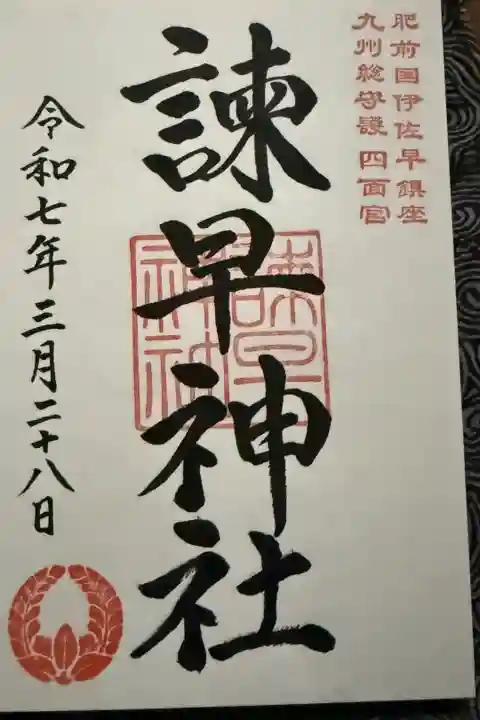 肥前国伊佐早鎮座
九州総守護四面宮
諫早神社
諫早神社
令和七年三月二十八日